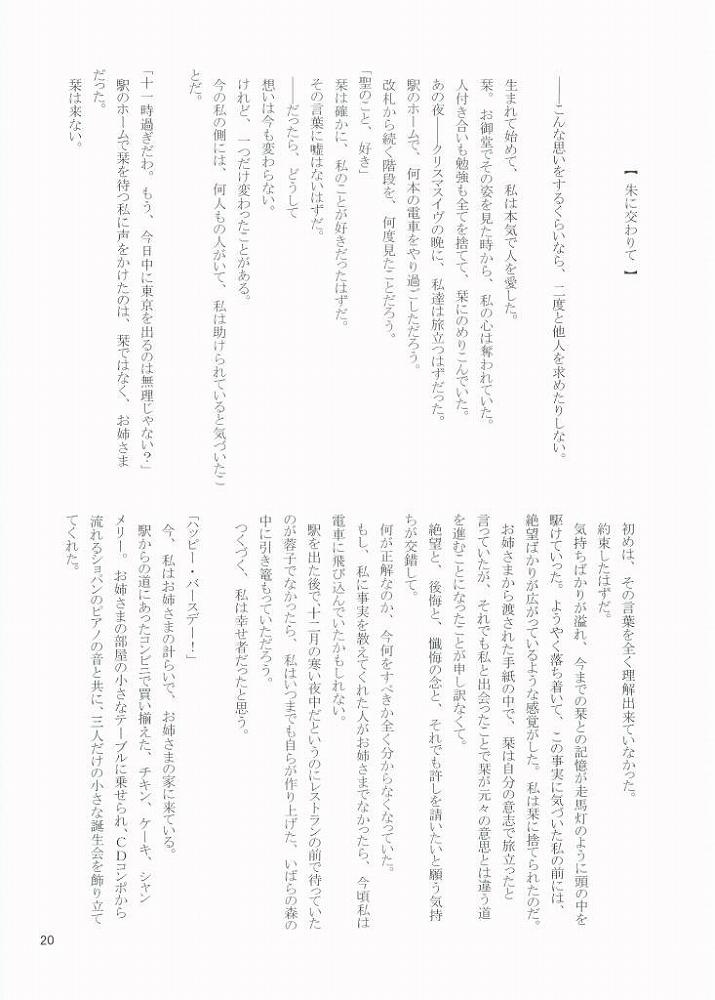 【 朱に交わりて 】
――こんな思いをするくらいなら、二度と他人を求めたりしない。
生まれて始めて、私は本気で人を愛した。
栞。お御堂でその姿を見た時から、私の心は奪われていた。
人付き合いも勉強も全てを捨てて、栞にのめりこんでいた。
あの夜――クリスマスイヴの晩に、私達は旅立つはずだった。
駅のホームで、何本の電車をやり過ごしただろう。
改札から続く階段を、何度見たことだろう。
「聖のこと、好き」
栞は確かに、私のことが好きだったはずだ。
その言葉に嘘はないはずだ。
――だったら、どうして
想いは今も変わらない。
けれど、一つだけ変わったことがある。
今の私の側には、何人もの人がいて、私は助けられていると気づいたこ
とだ。
「十一時過ぎだわ。もう、今日中に東京を出るのは無理じゃない？」
駅のホームで栞を待つ私に声をかけたのは、栞ではなく、お姉さま
だった。
栞は来ない。
初めは、その言葉を全く理解出来ていなかった。
約束したはずだ。
気持ちばかりが溢れ、今までの栞との記憶が走馬灯のように頭の中を
駆けていった。ようやく落ち着いて、この事実に気づいた私の前には、
絶望ばかりが広がっているような感覚がした。私は栞に捨てられたのだ。
お姉さまから渡された手紙の中で、栞は自分の意志で旅立ったと
言っていたが、それでも私と出会ったことで栞が元々の意思とは違う道
を進むことになったことが申し訳なくて。
絶望と、後悔と、懺悔の念と、それでも許しを請いたいと願う気持
ちが交錯して。
何が正解なのか、今何をすべきか全く分からなくなっていた。
もし、私に事実を教えてくれた人がお姉さまでなかったら、今頃私は
電車に飛び込んでいたかもしれない。
駅を出た後で、十二月の寒い夜中だというのにレストランの前で待っていた
のが蓉子でなかったら、私はいつまでも自らが作り上げた、いばらの森の
中に引き篭もっていただろう。
つくづく、私は幸せ者だったと思う。
「ハッピー・バースデー！」
今、私はお姉さまの計らいで、お姉さまの家に来ている。
駅からの道にあったコンビニで買い揃えた、チキン、ケーキ、シャン
メリー。お姉さまの部屋の小さなテーブルに乗せられ、CDコンポから
流れるショパンのピアノの音と共に、三人だけの小さな誕生会を飾り立て
てくれた。
20